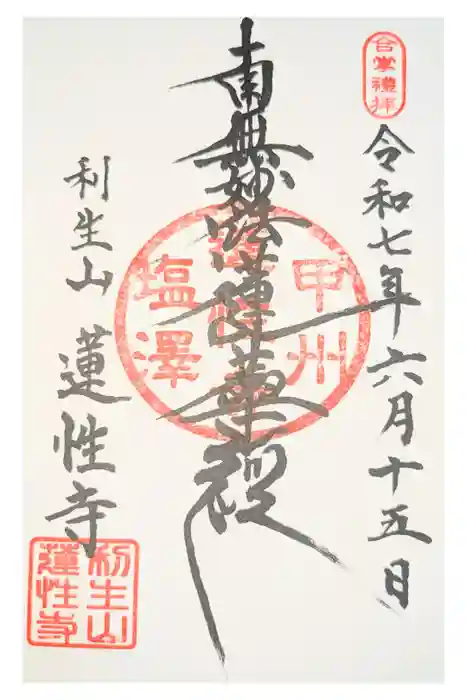 合掌禮拝
令和七年六月十五日
南無妙法蓮華経
甲州
塩澤
利生山 蓮性寺
利生山
蓮性寺